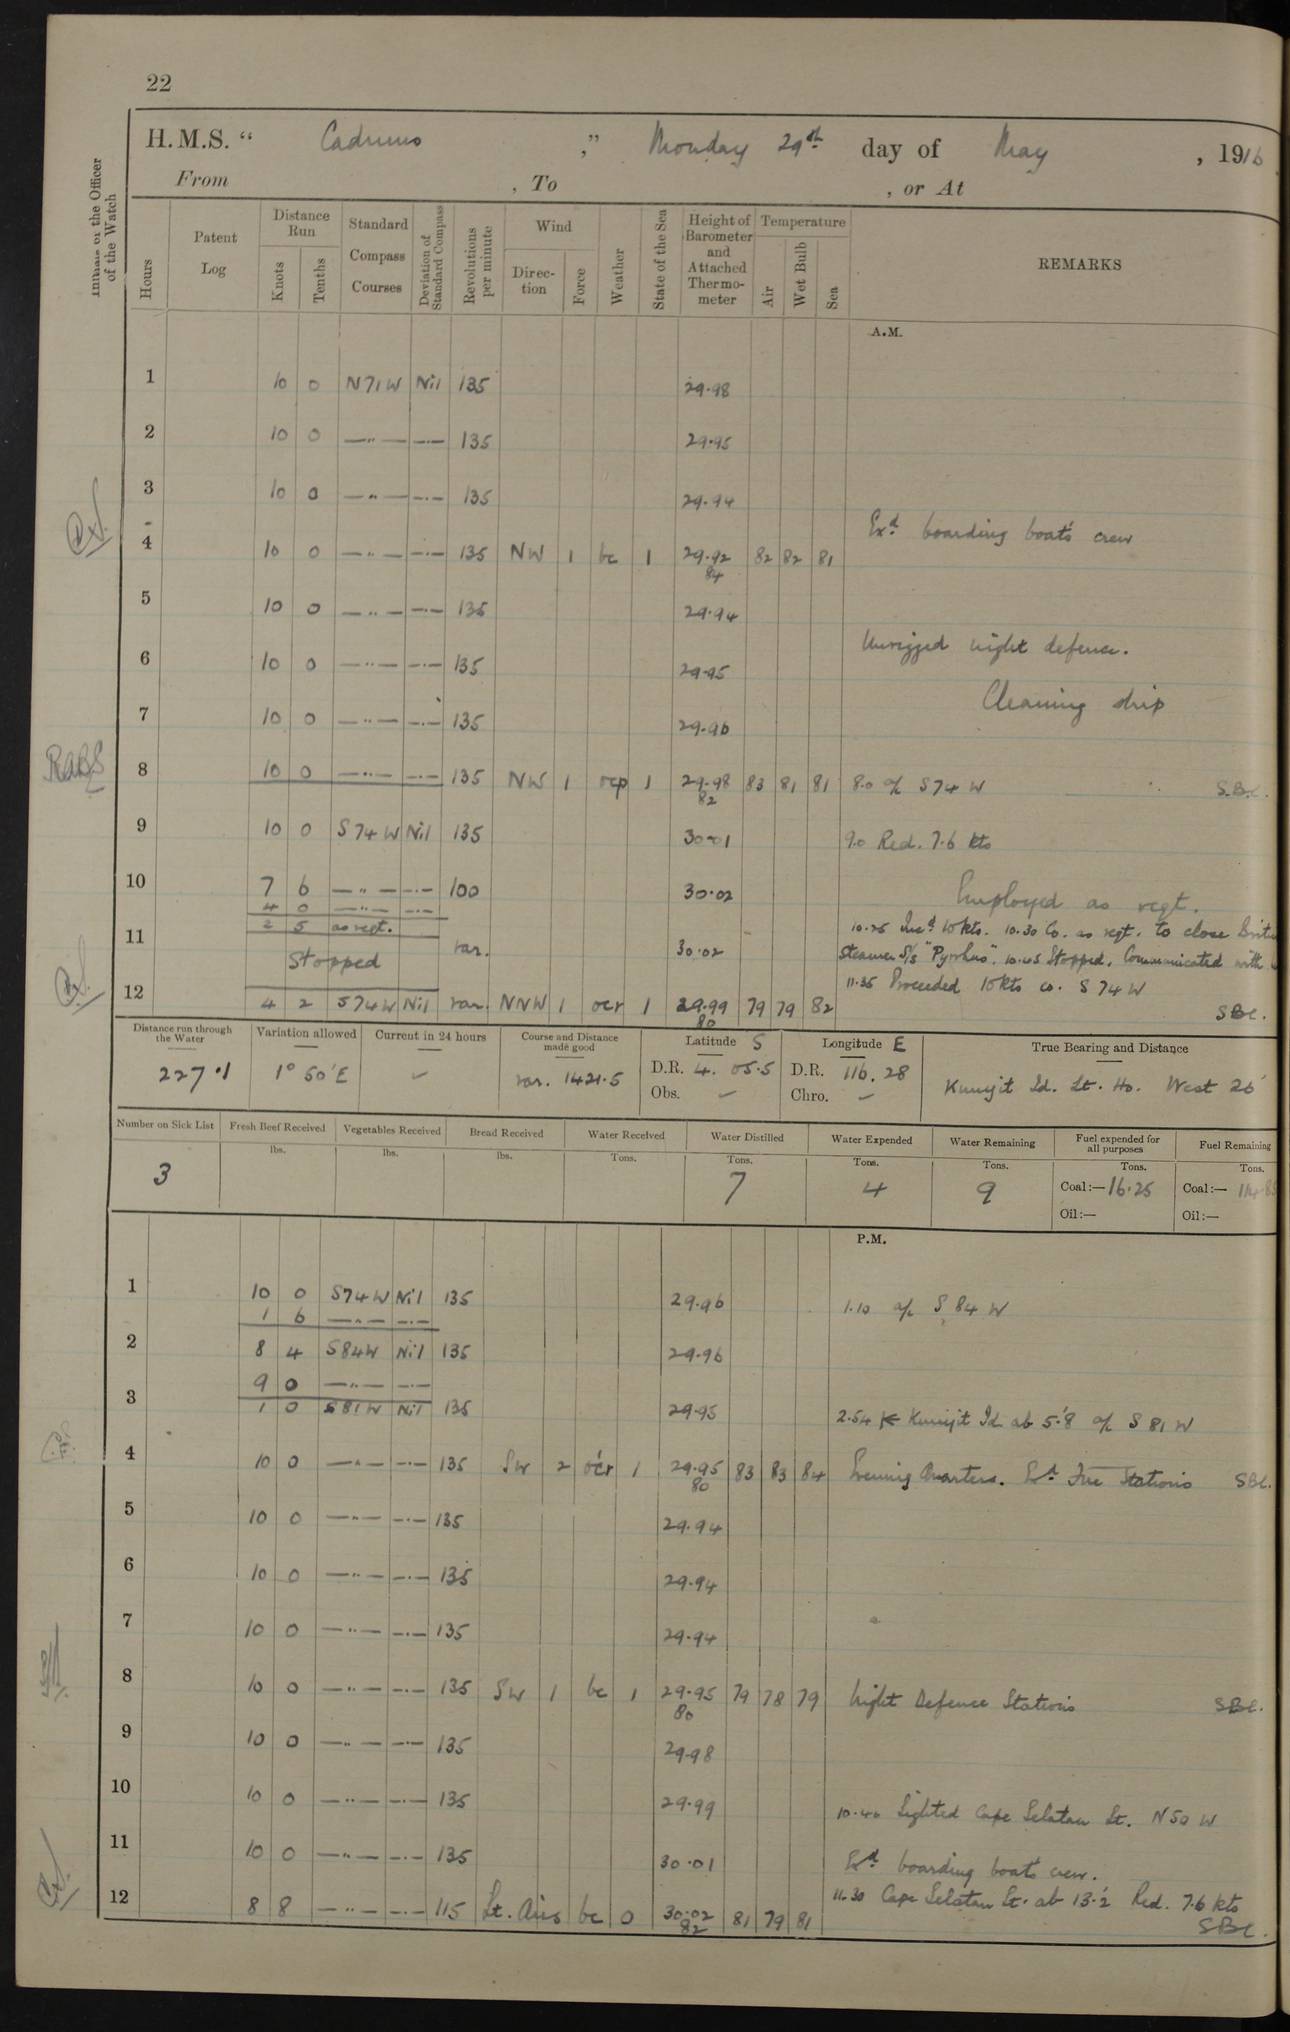 22
H.M.S. “ Cadmus ,” Monday 29th day of May , 1916
From , To , or At
Initials of the Officer of the Watch
Hours
Patent Log
Distance Run
Knots Tenths
Standard Compass Courses
Deviation of Standard Compass
Revolutions per minute
Wind
Direction Force
Weather
State of the Sea
Height of Barometer and Attached Thermometer
Temperature
Air Wet Bulb Sea
REMARKS
A.M.
1 10 0 N71W Nil 135 29.98
2 10 0 —"— —"— 135 29.95
3 10 0 —"— —"— 135 29.94
Exd. boarding boats crew
4 10 0 —"— —"— 135 NW 1 bc 1 29.92 82 82 81
84
5 10 0 —"— —"— 135 29.94
Unrigged night defence.
6 10 0 —"— —"— 135 29.95
Cleaning ship
7 10 0 —"— —"— 135 29.96
RABS
8 10 0 —"— —"— 135 NW 1 ocp 1 29.98 83 81 81 8.0 a/c S74W S.B.C.
82
9 10 0 S74W Nil 135 30.01 9.0 Red. 7.6 kts
10 7 6 —"— —"— 100 30.02 Employed as reqt.
4 0 —"— —"—
2 5 as reqt. 10.25 Incd. 10 kts. 10.30 Co. as reqt. to close
11 Stopped var. 30.02 Steamer S/s "Pyrrhus". 10.45 Stopped. Communicated with
11.35 Proceeded 10 kts co. S74W
12 4 2 S74W Nil var. NNW 1 ocr 1 29.99 79 79 82 SBC.
80
Distance run through the Water
227.1
Variation allowed
1° 50' E
Current in 24 hours
Course and Distance made good
var. 1421.5
Latitude S
D.R. 4. 05.5
Obs.
Longitude E
D.R. 116. 28
Chro.
True Bearing and Distance
Kunyit Id. Lt. Ho. West 26'
Number on Sick List
3
Fresh Beef Received
lbs.
Vegetables Received
lbs.
Bread Received
lbs.
Water Received
Tons.
Water Distilled
Tons.
7
Water Expended
Tons.
4
Water Remaining
Tons.
9
Fuel expended for all purposes
Tons.
Coal:— 16.25
Oil:—
Fuel Remaining
Tons.
Coal:—
Oil:—
P.M.
1 10 0 S74W Nil 135 29.96 1.10 a/c S84W
1 6 —"— —"—
2 8 4 S84W Nil 135 29.96
9 0 —"— —"—
3 1 0 S81W Nil 135 29.95 2.54 Kunyit Id ab 5.'8 a/c S81W
4 10 0 —"— —"— 135 SW 2 ocr 1 29.95 83 83 84 Evening Quarters. Exd. Fire Stations SBC.
80
5 10 0 —"— —"— 135 29.94
6 10 0 —"— —"— 135 29.94
7 10 0 —"— —"— 135 29.94
8 10 0 —"— —"— 135 SW 1 bc 1 29.95 79 78 79 Night Defence Stations SBC.
80
9 10 0 —"— —"— 135 29.98
10 10 0 —"— —"— 135 29.99 10.40 Sighted Cape Selatan Lt. N50W
11 10 0 —"— —"— 135 30.01 Exd. boarding boats crew.
11.30 Cape Selatan Lt. ab 13.'2 Red. 7.6 kts
12 8 8 —"— —"— 115 Lt. Airs bc 0 30.02 81 79 81 SBC.
82